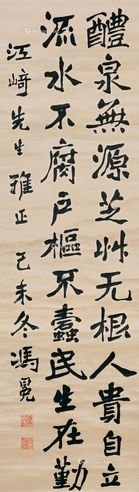 醴泉無源芝艸无根人貴自立
流水不腐户樞不蠹民生在勤
江﨑先生雅正 己未冬 馮冕